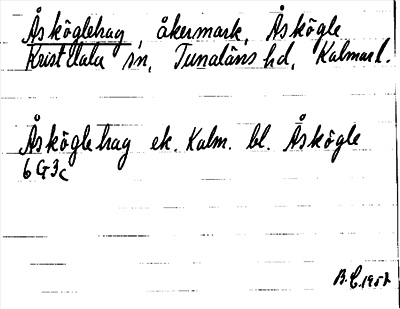 Åsköglehag, åkermark, Åskögle
Kristdala sn, Tunaläns hd, Kalmar l.
Åsköglehag ek. Kalm. bl. Åskögle
6G3c
B.E. 1952